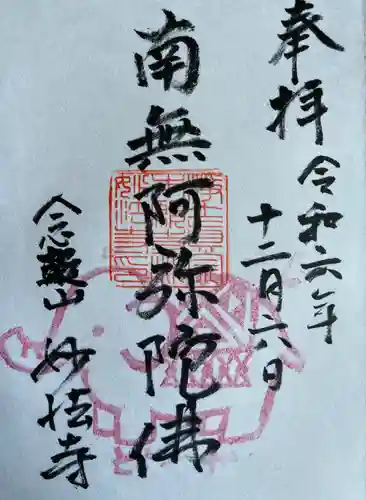 奉拝
令和六年
十二月六日
南無阿弥陀佛
念叡山
妙法寺